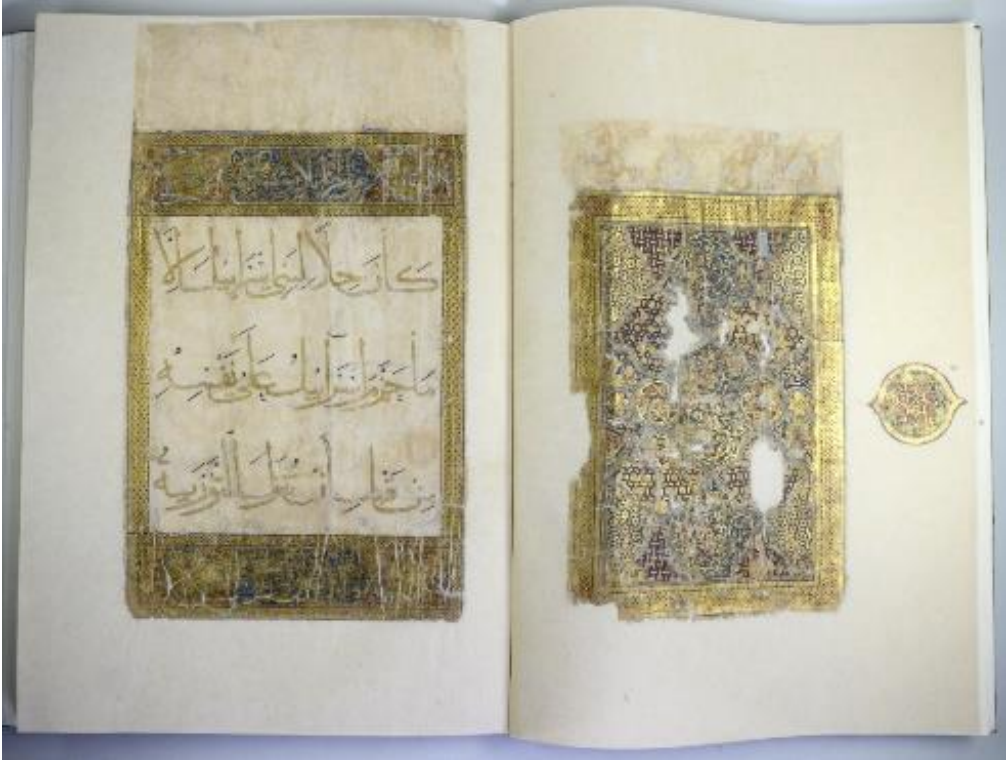 كَانَ حِلًّا لِبَنِي إِسْرَائِيلَ إِلَّا
مَا حَرَّمَ إِسْرَائِيلُ عَلَىٰ نَفْسِهِ
مِن قَبْلِ أَن تُنَزَّلَ التَّوْرَاةُ